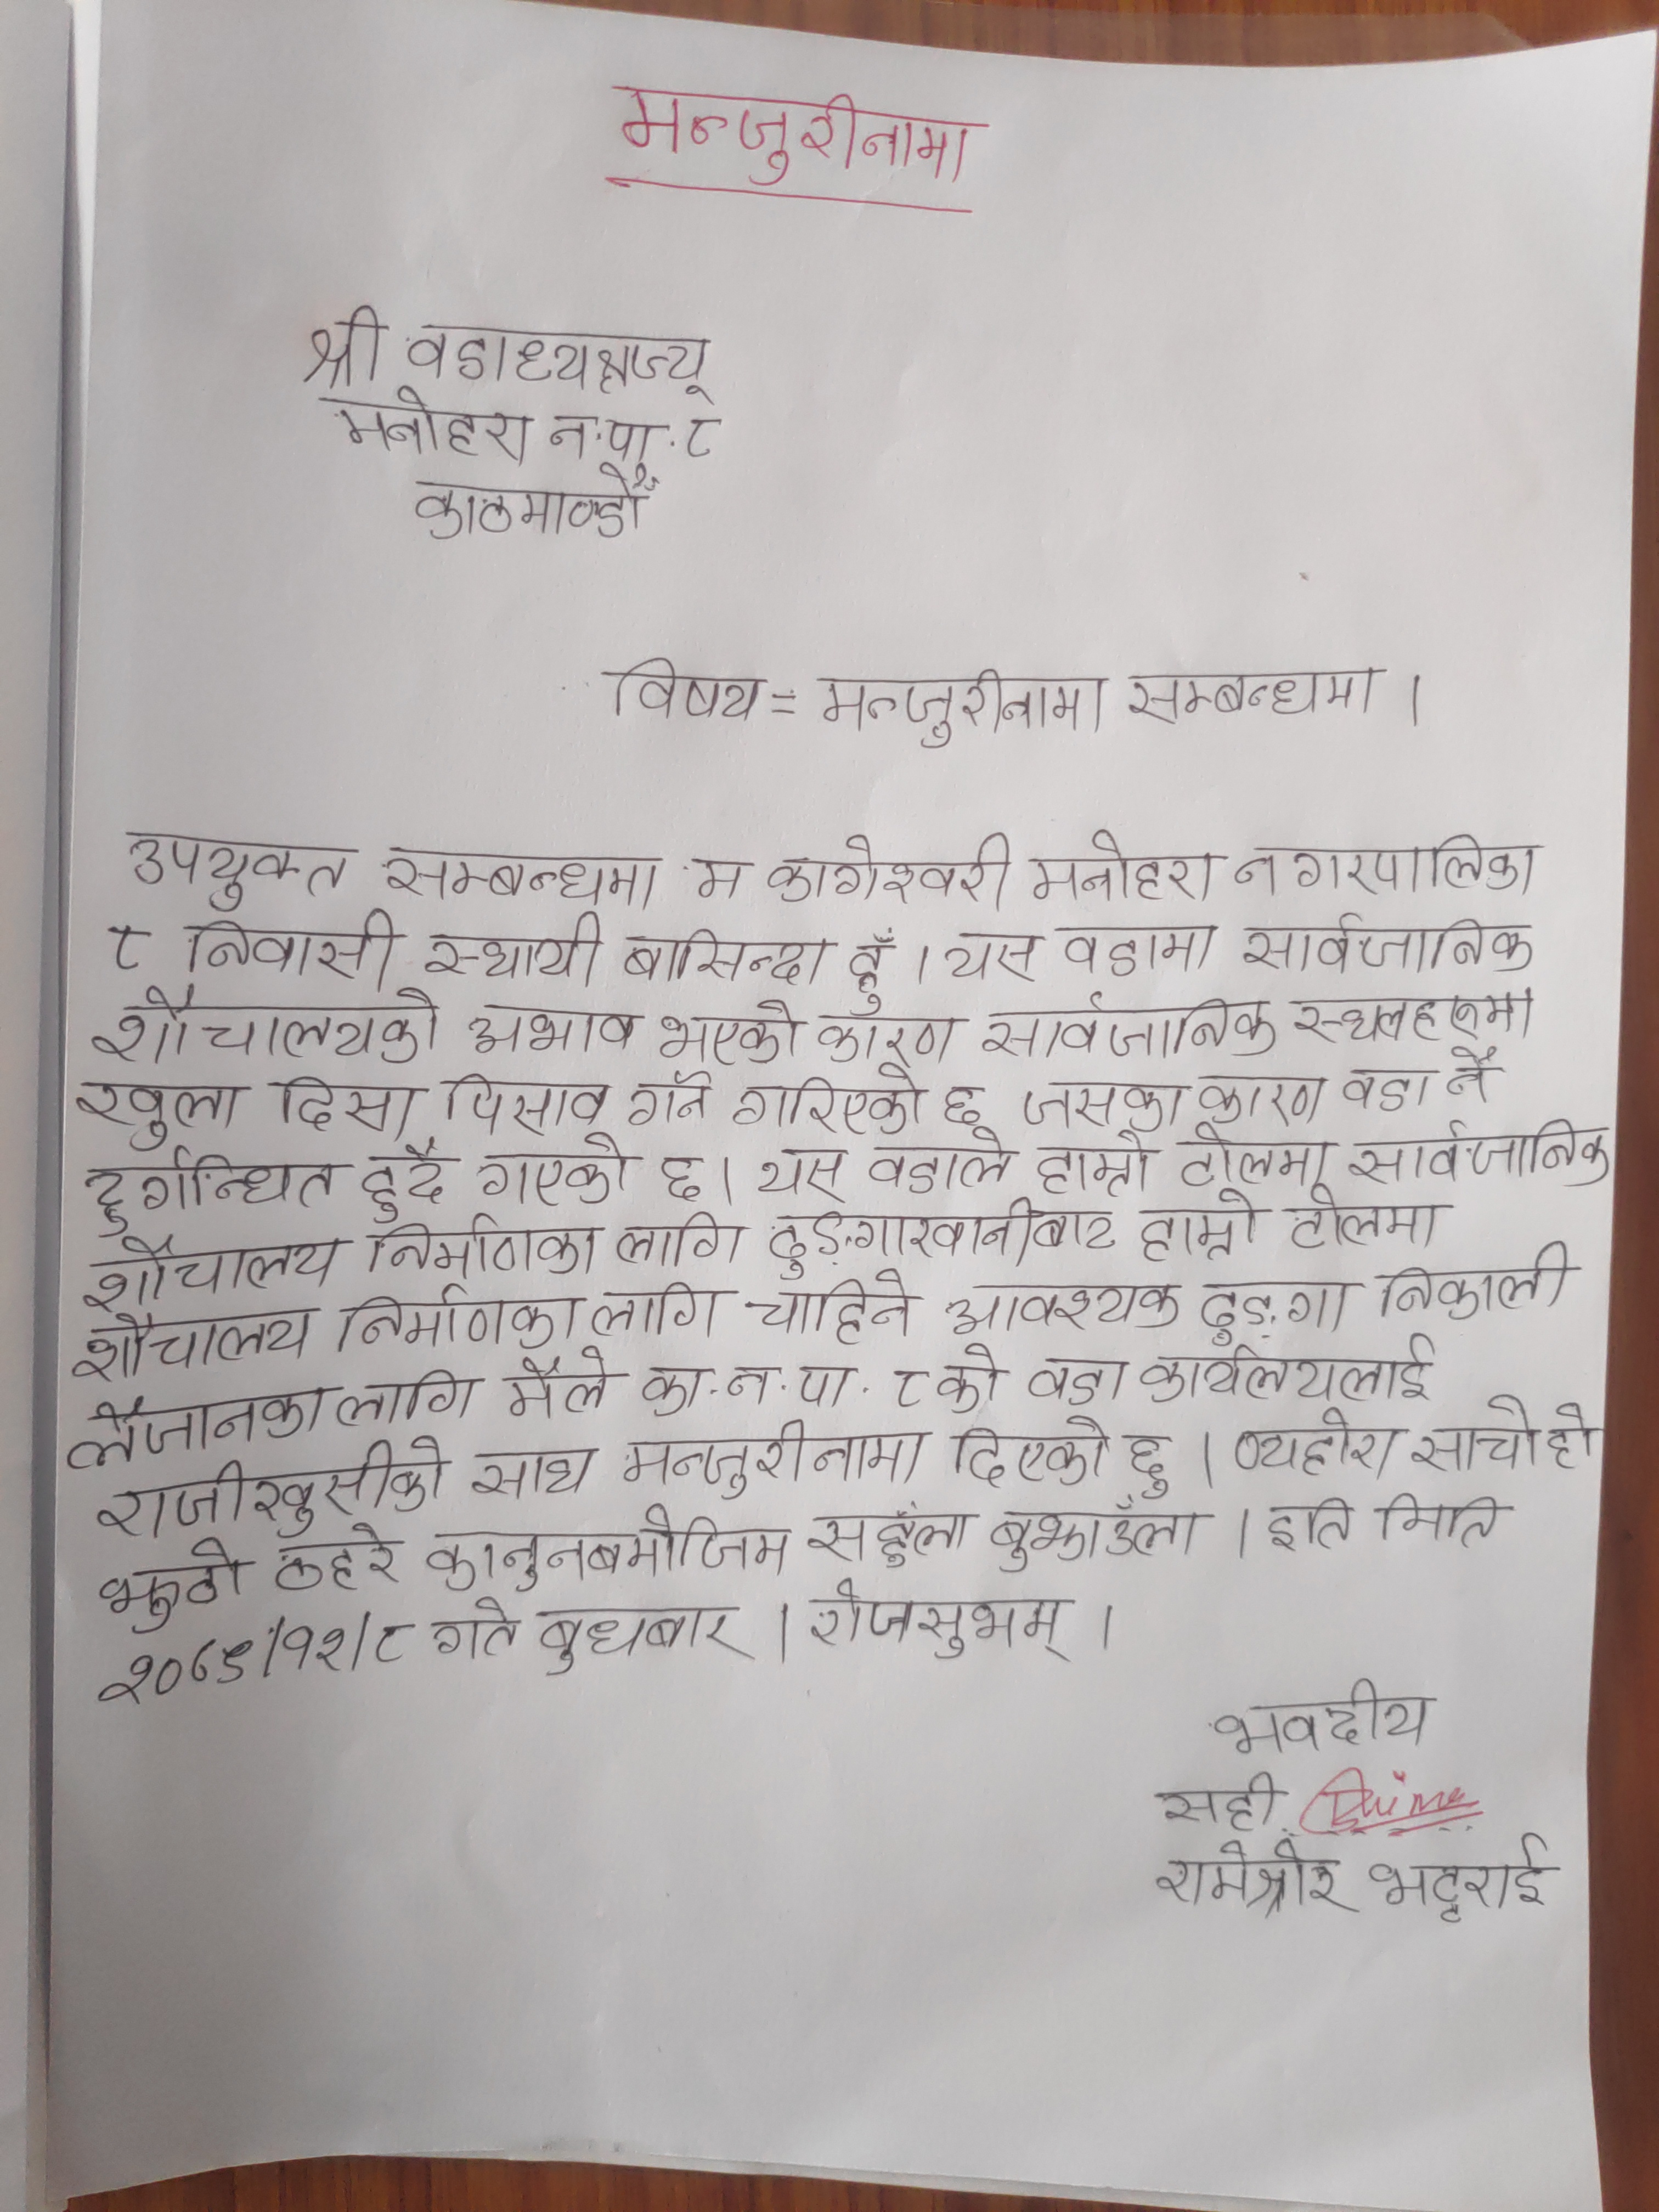 मन्जुरीनामा
श्री वडाध्यक्षज्यू
मनोहरा न.पा.८
काठमाण्डौँ
विषय = मन्जुरीनामा सम्बन्धमा ।
उपयुक्त सम्बन्धमा म कागेश्वरी मनोहरा नगरपालिका
८ निवासी स्थायी बासिन्दा हुँ । यस वडामा सार्वजानिक
शौचालयको अभाव भएको कारण सार्वजानिक स्थलहरूमा
खुला दिसा पिसाव गर्ने गरिएको छ जसका कारण वडा नै
दुर्गन्धित हुदै गएको छ । यस वडाले हाम्रो टोलमा सार्वजानिक
शौचालय निर्माणका लागि ढुङ्गाखानीबाट हाम्रो टोलमा
शौचालय निर्माणका लागि चाहिने आवश्यक ढुङ्गा निकाली
लैजानका लागि मैले का.न.पा. ८ को वडा कार्यलयलाई
राजीखुसीको साथ मन्जुरीनामा दिएको छु । व्यहोरा साचो हो
झुठो ठहरे कानुनबमोजिम सहुँला बुझाउँला । इति मिति
२०७९/१२/८ गते बुधबार । रोजसुभम् ।
भवदीय
सही
भट्टराई